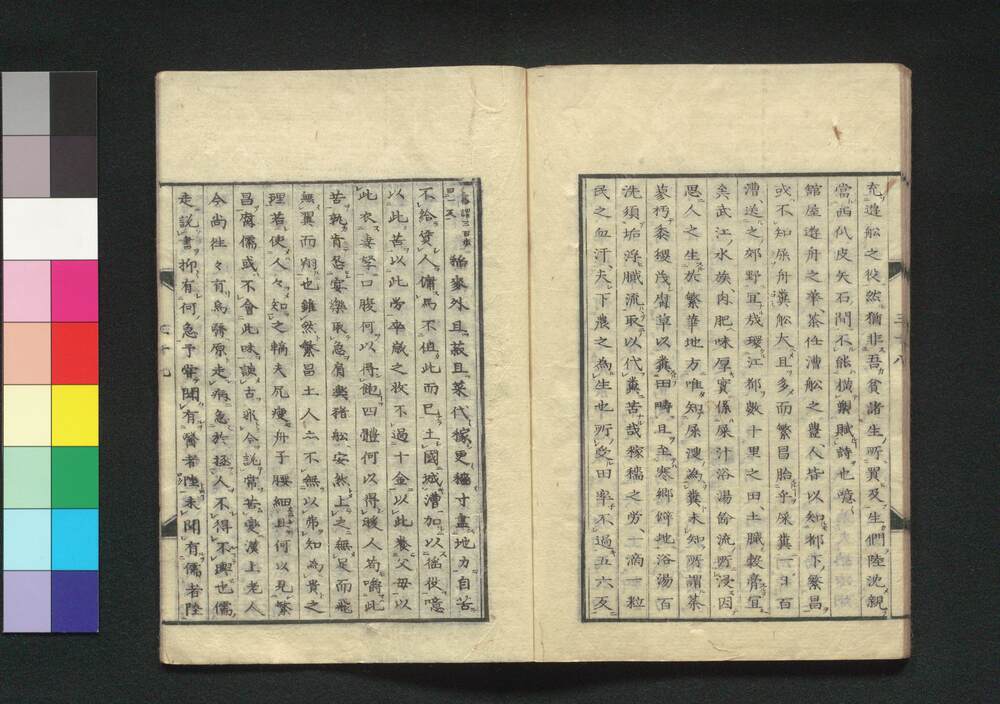 充遊舩之從然猶非吾貧諸生所買及生們陸沈親
當西代皮矢石間不能横槊賦詩也噫
館屋遊舟之華茶任漕舩之豊人皆以知都下繁昌
或不知屎舟糞舩大且多而繁昌胎乎屎糞一日百
漕送之郊野宜哉環江都數十里之田土膩穀膏宜
矣武江水族肉肥味厚實係屎汁浴湯餘流所浸因
思人之生於繁華地方唯知屎溲為糞未知所謂菜
蓼朽黍稷茂腐草以糞田疇且至寒郷僻地浴湯百
洗須垢浮膩流取以代糞苦哉稼穡之労一滴一粒
民之血汗夫下農之為生也所受田率不過五六反
不給賃人傭馬不但此而已土國城漕加以徭役噫
以此苦以此労卒歳之收不過十金以此養父母以
此衣妻孥口腹何以得飽四體何以得暖人苟嚼此
苦孰肯呑宴樂取急肩輿猪舩安然上之無足而飛
無翼而翔也雖然繁昌土人亦不無以弗知為貴之
理若使人々知之輪夫尻瘦舟子腰細且何以見繁
昌腐儒或不會此味諌古邪今説常苦變漢上老人
今尚往々有焉醫原走痛急於拯人不得不輿也儒
走説書抑有何急予甞聞有醫者陸未聞有儒者陸
三十八
三十九